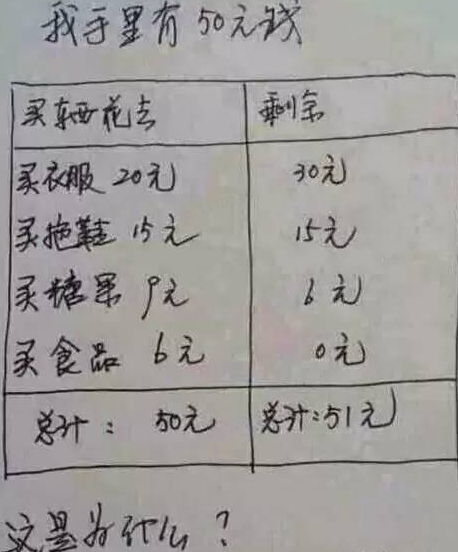 我手里有50元钱
买东西花去 剩余
买衣服 20元 30元
买拖鞋 15元 15元
买糖果 9元 6元
买食品 6元 0元
总计： 50元 总计:51元
这是为什么？